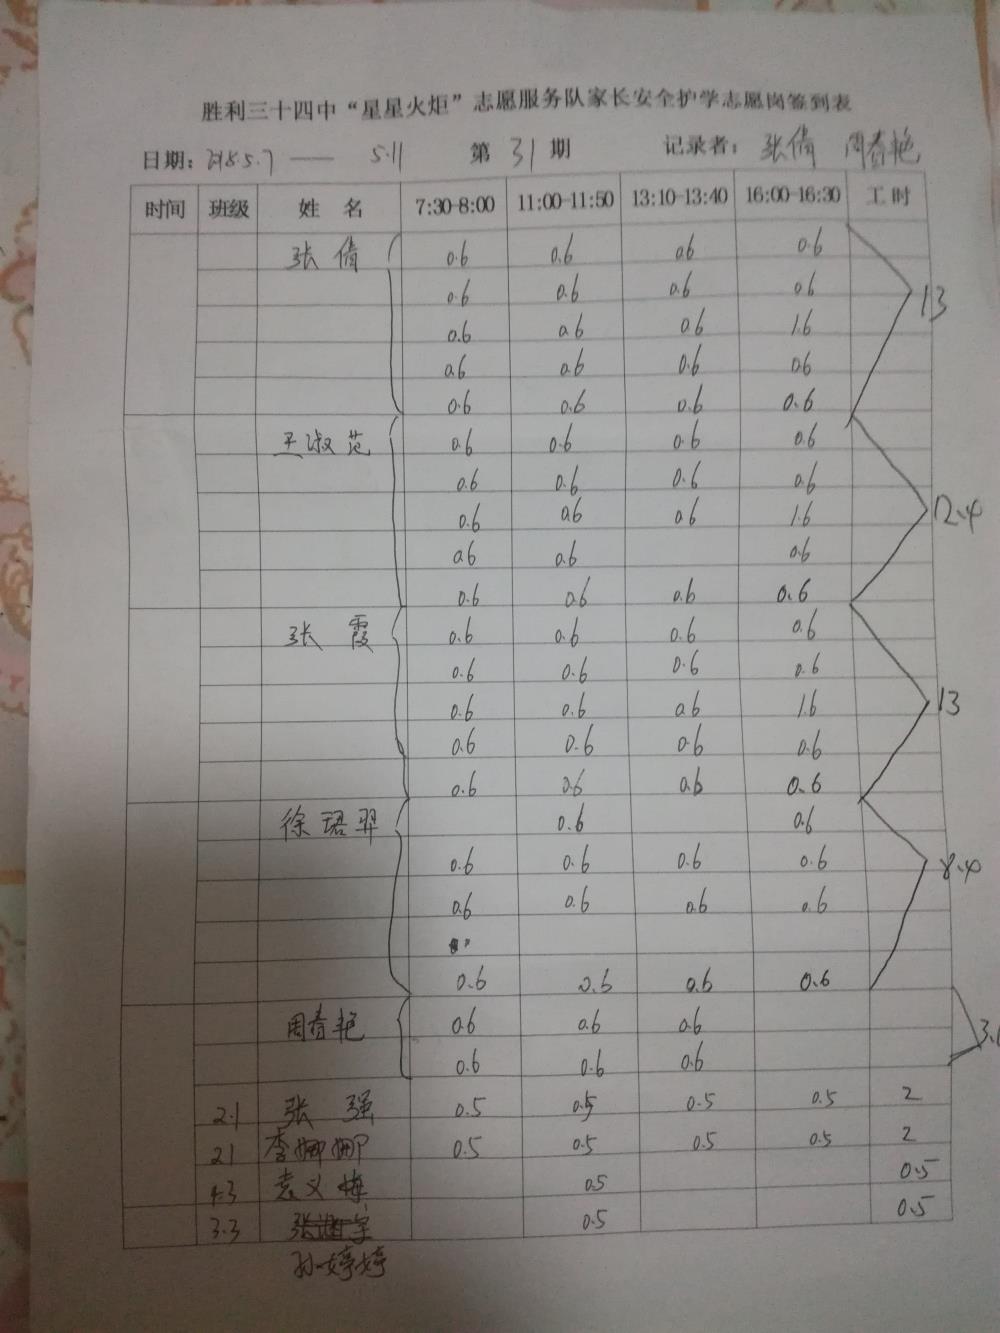 胜利三十四中“星星火炬”志愿服务队家长安全护学志愿岗签到表
日期: 2018.5.7 —— 5.11 第 31 期 记录者: 张倩 周春艳
时间 班级 姓名 7:30-8:00 11:00-11:50 13:10-13:40 16:00-16:30 工时
张倩 0.6 0.6 0.6 0.6
0.6 0.6 0.6 0.6 13
0.6 0.6 0.6 1.6
0.6 0.6 0.6 0.6
0.6 0.6 0.6 0.6
王淑范 0.6 0.6 0.6 0.6
0.6 0.6 0.6 0.6
0.6 0.6 0.6 1.6 12.4
0.6 0.6 0.6
0.6 0.6 0.6 0.6
张霞 0.6 0.6 0.6 0.6
0.6 0.6 0.6 0.6
0.6 0.6 0.6 1.6 13
0.6 0.6 0.6 0.6
0.6 0.6 0.6 0.6
徐珺羿 0.6 0.6
0.6 0.6 0.6 0.6 8.4
0.6 0.6 0.6 0.6
0.6 0.6 0.6 0.6
周春艳 0.6 0.6 0.6 3.6
0.6 0.6 0.6
2.1 张强 0.5 0.5 0.5 0.5 2
2.1 李娜娜 0.5 0.5 0.5 0.5 2
4.3 袁义梅 0.5 0.5
3.3 0.5 0.5
孙婷婷